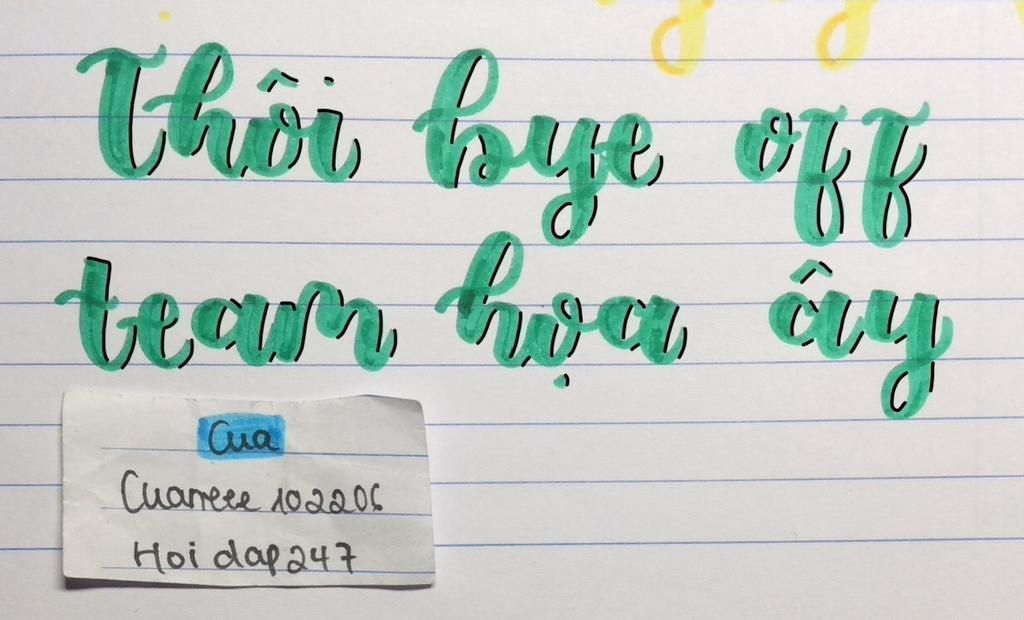 Thôi bye off
team họa ây
Cua
Cuarreee 102206
Hoi dap 247